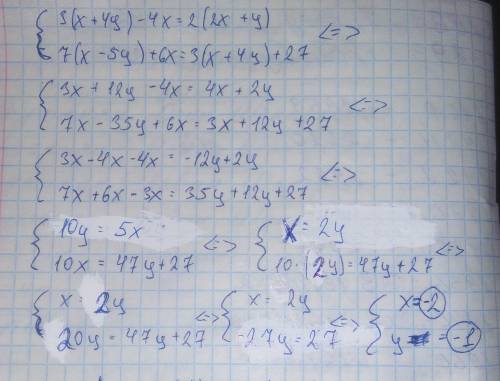 3(x+4y)-4x=2(2x+y)
7(x-5y)+6x=3(x+4y)+27 <=>
3x+12y-4x=4x+2y
7x-35y+6x=3x+12y+27 <=>
3x-4x-4x=-12y+2y
7x+6x-3x=35y+12y+27 <=>
10y=5x <=> x=2y <=>
10x=47y+27 10·(2y)=47y+27
x=2y <=> x=2y <=> x=-2
20y=47y+27 -27y=27 y=-1